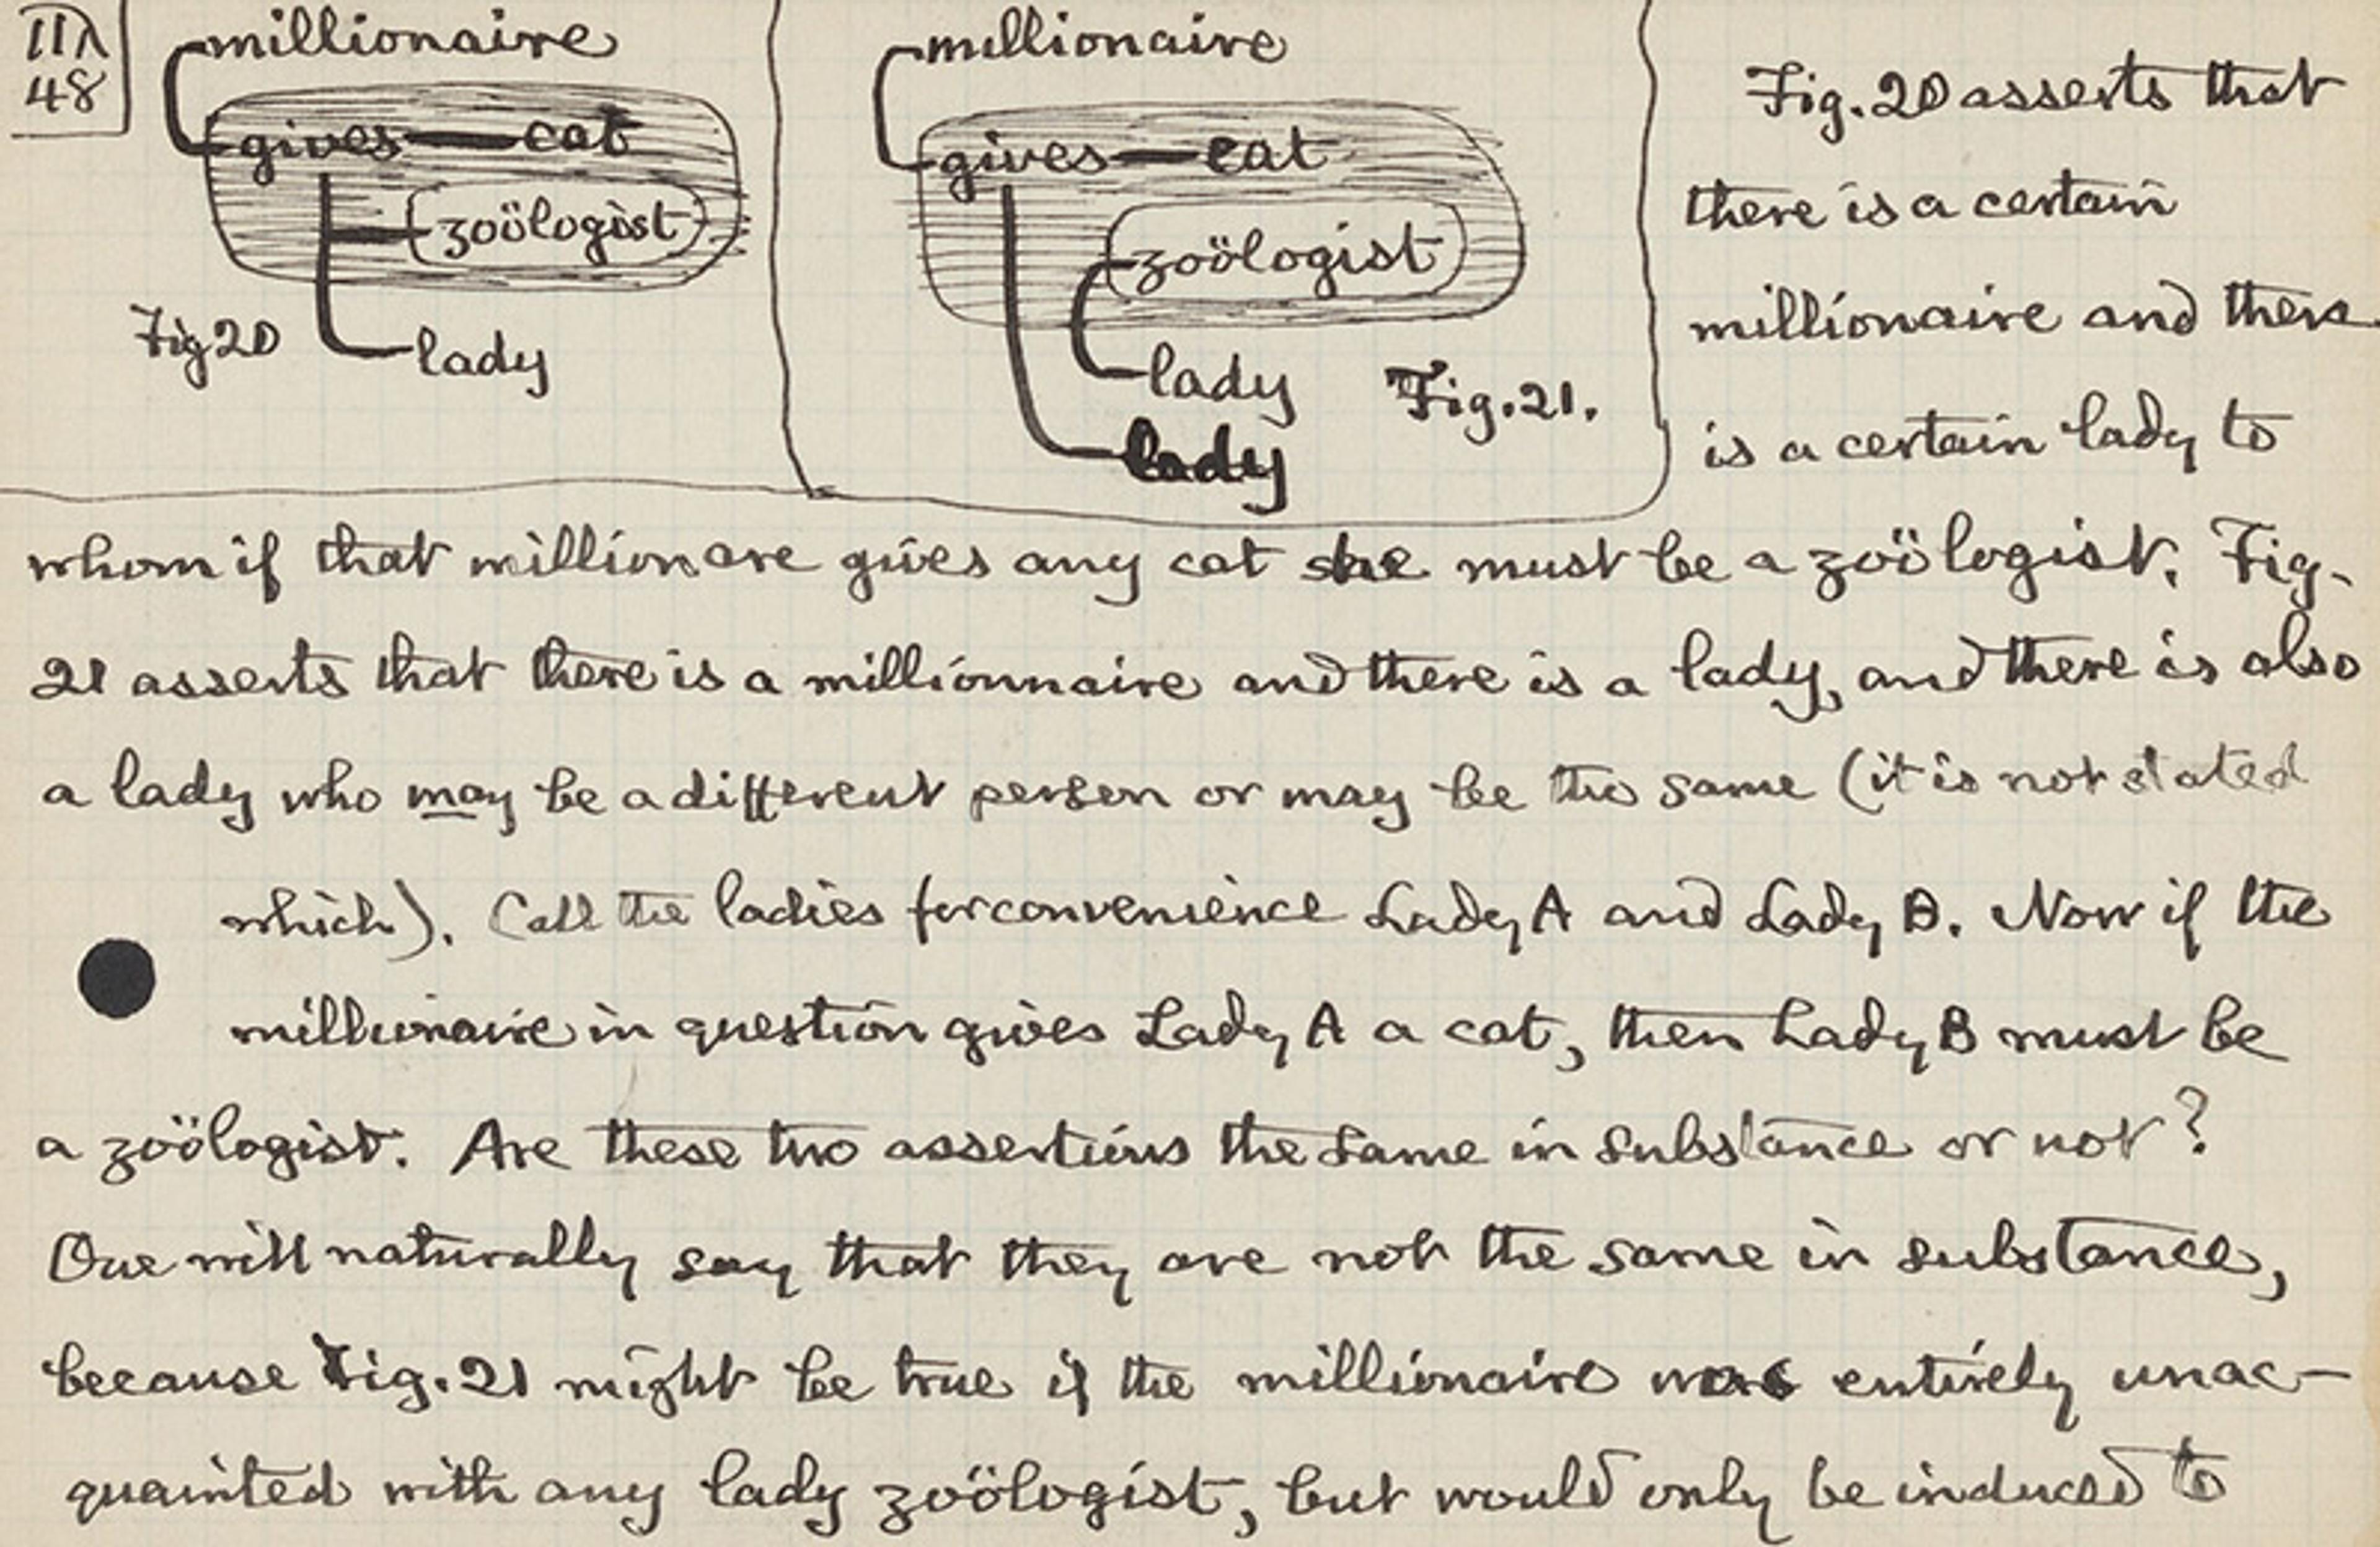 ΠΛ
48
millionaire
gives cat
zoölogist
lady
Fig 20
millionaire
gives cat
zoölogist
lady
Fig. 21.
lady
Fig. 20 asserts that
there is a certain
millionaire and there
is a certain lady to
whom if that millionare gives any cat she must be a zoölogist. Fig.
21 asserts that there is a millionnaire and there is a lady, and there is also
a lady who may be a different person or may be the same (it is not stated
which). Call the ladies for convenience Lady A and Lady B. Now if the
millionaire in question gives Lady A a cat, then Lady B must be
a zoölogist. Are these two assertions the same in substance or not?
One will naturally say that they are not the same in substance,
because Fig. 21 might be true if the millionaire was entirely unac-
quainted with any lady zoölogist, but would only be induced to